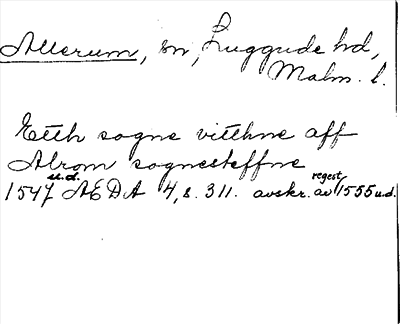 Allerum, sn, Luggude hd,
Malm. l.
Etth sogne vitthne aff
Alrom sognesteffne
1547 u.d. AEDA 4, s. 311. avskr. av regest 1555 u.d.